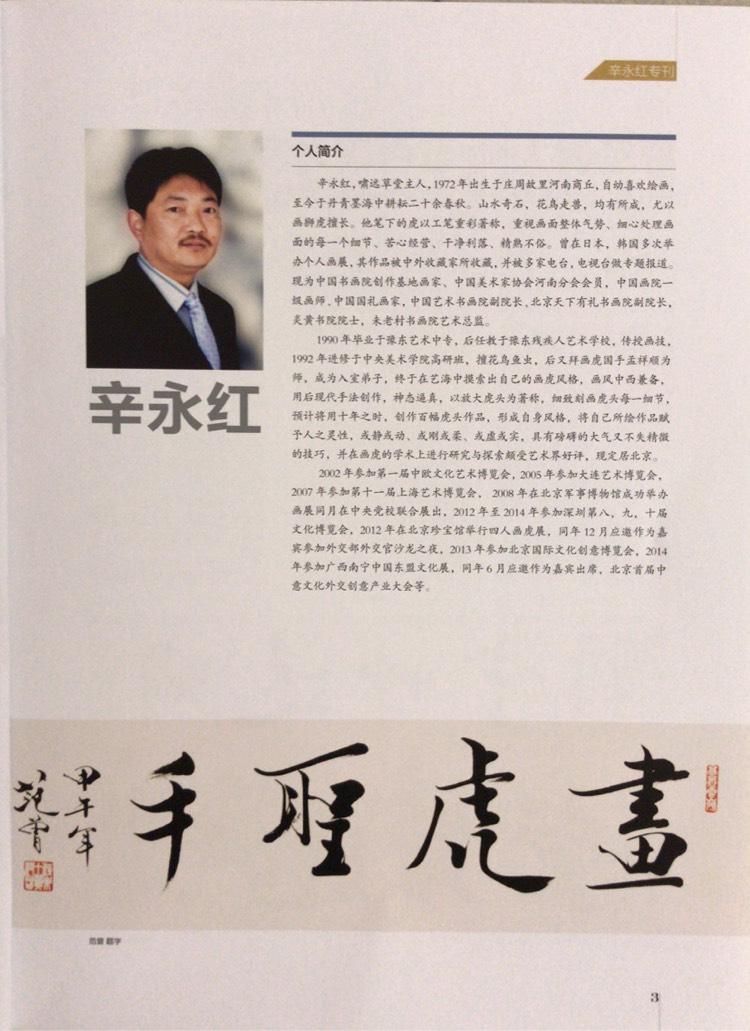 辛永红专刊
个人简介
辛永红，啸远草堂主人，1972年出生于庄周故里河南商丘，自幼喜欢绘画，
至今于丹青墨海中耕耘二十余春秋。山水奇石，花鸟走兽，均有所成，尤以
画狮虎擅长。他笔下的虎以工笔重彩著称，重视画面整体气势、细心处理画
面的每一个细节、苦心经营、干净利落、精熟不俗。曾在日本，韩国多次举
办个人画展，其作品被中外收藏家所收藏，并被多家电台，电视台做专题报道。
现为中国书画院创作基地画家、中国美术家协会河南分会会员，中国画院一
级画师、中国国礼画家，中国艺术书画院副院长、北京天下有礼书画院副院长，
炎黄书院院士，未老村书画院艺术总监。
1990年毕业于豫东艺术中专，后任教于豫东残疾人艺术学校，传授画技，
1992年进修于中央美术学院高研班，擅花鸟鱼虫，后又拜画虎国手孟祥顺为
师，成为入室弟子，终于在艺海中摸索出自己的画虎风格，画风中西兼备，
用后现代手法创作，神态逼真，以放大虎头为著称，细致刻画虎头每一细节，
预计将用十年之时，创作百幅虎头作品，形成自身风格，将自己所绘作品赋
予人之灵性，或静或动、或刚或柔、或虚或实，具有磅礴的大气又不失精微
的技巧，并在画虎的学术上进行研究与探索颇受艺术界好评，现定居北京。
2002年参加第一届中欧文化艺术博览会，2005年参加大连艺术博览会，
2007年参加第十一届上海艺术博览会， 2008年在北京军事博物馆成功举办
画展同月在中央党校联合展出，2012年至2014年参加深圳第八，九，十届
文化博览会，2012年在北京珍宝馆举行四人画虎展，同年12月应邀作为嘉
宾参加外交部外交官沙龙之夜，2013年参加北京国际文化创意博览会，2014
年参加广西南宁中国东盟文化展，同年6月应邀作为嘉宾出席，北京首届中
意文化外交创意产业大会等。
辛永红
畫虎聖手
甲午年
范曾
范曾 题字
3